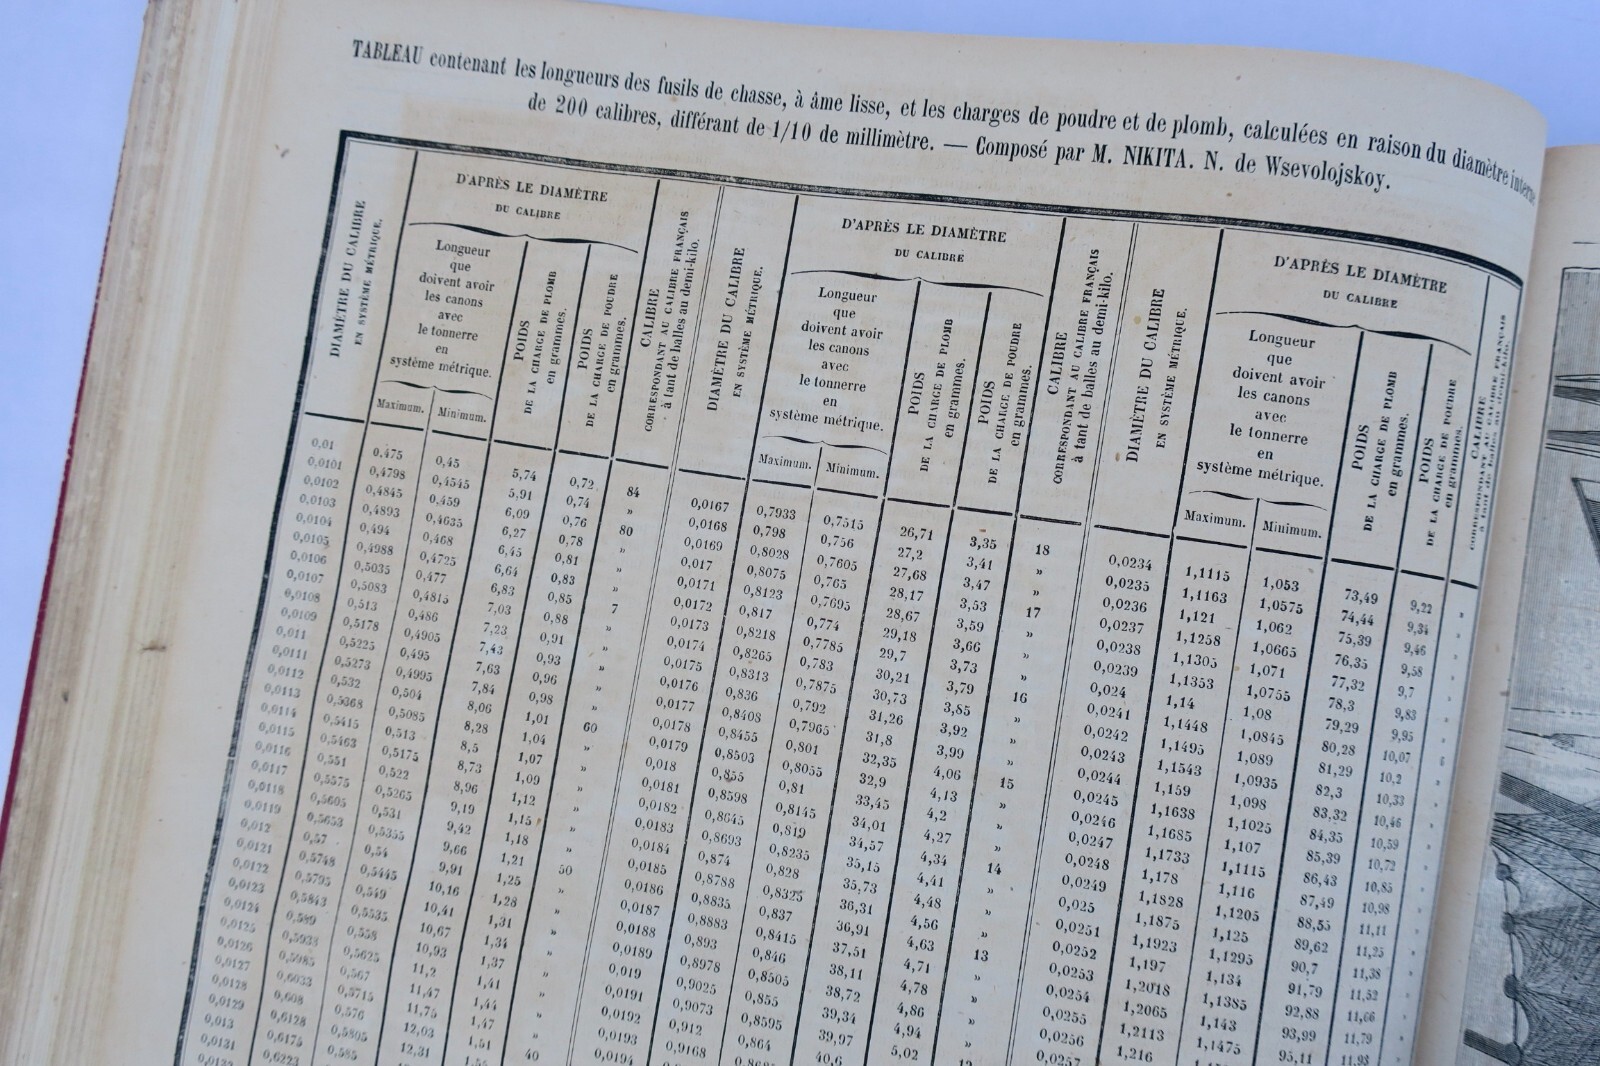 TABLEAU contenant les longueurs des fusils de chasse, à âme lisse, et les charges de poudre et de plomb, calculées en raison du diamètre interne
de 200 calibres, différant de 1/10 de millimètre. — Composé par M. NIKITA. N. de Wsevolojskoy.
DIAMÈTRE DU CALIBRE
EN SYSTÈME MÉTRIQUE.
D'APRÈS LE DIAMÈTRE
DU CALIBRE
Longueur
que
doivent avoir
les canons
avec
le tonnerre
en
système métrique.
Maximum. Minimum.
POIDS
DE LA CHARGE DE PLOMB
en grammes.
POIDS
DE LA CHARGE DE POUDRE
en grammes.
CALIBRE
CORRESPONDANT AU CALIBRE FRANÇAIS
à tant de balles au demi-kilo.
DIAMÈTRE DU CALIBRE
EN SYSTÈME MÉTRIQUE.
D'APRÈS LE DIAMÈTRE
DU CALIBRE
Longueur
que
doivent avoir
les canons
avec
le tonnerre
en
système métrique.
Maximum. Minimum.
POIDS
DE LA CHARGE DE PLOMB
en grammes.
POIDS
DE LA CHARGE DE POUDRE
en grammes.
CALIBRE
CORRESPONDANT AU CALIBRE FRANÇAIS
à tant de balles au demi-kilo.
DIAMÈTRE DU CALIBRE
EN SYSTÈME MÉTRIQUE.
D'APRÈS LE DIAMÈTRE
DU CALIBRE
Longueur
que
doivent avoir
les canons
avec
le tonnerre
en
système métrique.
Maximum. Minimum.
POIDS
DE LA CHARGE DE PLOMB
en grammes.
POIDS
DE LA CHARGE DE POUDRE
en grammes.
CALIBRE
CORRESPONDANT AU CALIBRE FRANÇAIS
à tant de balles au demi-kilo.
0,01 0,475 0,45 5,74 0,72 84 0,0167 0,7933 0,7515 26,71 3,35 18 0,0234 1,1115 1,053 73,49 9,22 »
0,0101 0,4798 0,4545 5,91 0,74 » 0,0168 0,798 0,756 27,2 3,41 » 0,0235 1,1163 1,0575 74,44 9,34
0,0102 0,4845 0,459 6,09 0,76 80 0,0169 0,8028 0,7605 27,68 3,47 » 0,0236 1,121 1,062 75,39 9,46
0,0103 0,4893 0,4635 6,27 0,78 » 0,017 0,8075 0,765 28,17 3,53 17 0,0237 1,1258 1,0665 76,35 9,58
0,0104 0,494 0,468 6,45 0,81 0,0171 0,8123 0,7695 28,67 3,59 » 0,0238 1,1305 1,071 77,32 9,7
0,0105 0,4988 0,4725 6,64 0,83 » 0,0172 0,817 0,774 29,18 3,66 » 0,0239 1,1353 1,0755 78,3 9,83
0,0106 0,5035 0,477 6,83 0,85 7 0,0173 0,8218 0,7785 29,7 3,73 » 0,024 1,14 1,08 79,29 9,95
0,0107 0,5083 0,4815 7,03 0,88 » 0,0174 0,8265 0,783 30,21 3,79 16 0,0241 1,1448 1,0845 80,28 10,07
0,0108 0,513 0,486 7,23 0,91 » 0,0175 0,8313 0,7875 30,73 3,85 » 0,0242 1,1495 1,089 81,29 10,2
0,0109 0,5178 0,4905 7,43 0,93 » 0,0176 0,836 0,792 31,26 3,92 » 0,0243 1,1543 1,0935 82,3 10,33
0,011 0,5225 0,495 7,63 0,96 0,0177 0,8408 0,7965 31,8 3,99 » 0,0244 1,159 1,098 83,32 10,46
0,0111 0,5273 0,4995 7,84 0,98 60 0,0178 0,8455 0,801 32,35 4,06 15 0,0245 1,1638 1,1025 84,35 10,59
0,0112 0,532 0,504 8,06 1,01 » 0,0179 0,8503 0,8055 32,9 4,13 » 0,0246 1,1685 1,107 85,39 10,72
0,0113 0,5368 0,5085 8,28 1,04 » 0,018 0,855 0,81 33,45 4,2 » 0,0247 1,1733 1,1115 86,43 10,85
0,0114 0,5415 0,513 8,5 1,07 » 0,0181 0,8598 0,8145 34,01 4,27 0,0248 1,178 1,116 87,49 10,98
0,0115 0,5463 0,5175 8,73 1,09 » 0,0182 0,8645 0,819 34,57 4,34 14 0,0249 1,1828 1,1205 88,55 11,11
0,0116 0,551 0,522 8,96 1,12 » 0,0183 0,8693 0,8235 35,15 4,41 » 0,025 1,1875 1,125 89,62 11,25
0,0117 0,5575 0,5265 9,19 1,15 » 0,0184 0,874 0,828 35,73 4,48 » 0,0251 1,1923 1,1295 90,7 11,38
0,0118 0,5605 0,531 9,42 1,18 50 0,0185 0,8788 0,8325 36,31 4,56 0,0252 1,197 1,134 91,79 11,52
0,0119 0,5653 0,5355 9,66 1,21 » 0,0186 0,8835 0,837 36,91 4,63 13 0,0253 1,2018 1,1385 92,88 11,66
0,012 0,57 0,54 9,91 1,25 » 0,0187 0,8883 0,8415 37,51 4,71 » 0,0254 1,2065 1,143 93,99 11,79
0,0121 0,5748 0,5445 10,16 1,28 » 0,0188 0,893 0,846 38,11 4,78 » 0,0255 1,2113 1,1475 95,11 11,93
0,0122 0,5795 0,549 10,41 1,31 » 0,0189 0,8978 0,8505 38,72 4,86 » 0,0256 1,216
0,0123 0,5843 0,5535 10,67 1,34 » 0,019 0,9025 0,855 39,34 4,94 » 0,0257
0,0124 0,589 0,558 10,93 1,37 » 0,0191 0,9073 0,8595 39,97 5,02
0,0125 0,5938 0,5625 11,2 1,41 » 0,0192 0,912 0,864 40,6
0,0126 0,5985 0,567 11,47 1,44 40 0,0193 0,9168
0,0127 0,6033 0,5715 11,75 1,47 0,0194
0,0128 0,608 0,576 12,03 1,51
0,0129 0,6128 0,5805 12,31
0,013 0,6175 0,585
0,0131 0,6223
0,0132